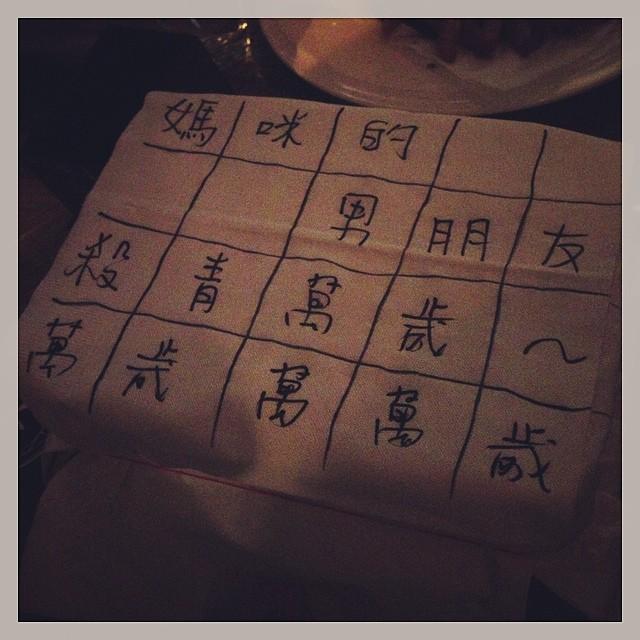 媽咪的
男朋友
殺青萬歲~
萬歲萬萬歲